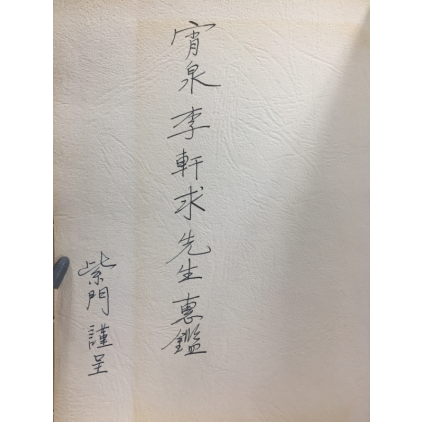 宵泉李軒求先生惠鑑
紫門謹呈